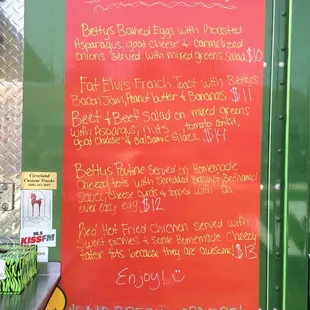 Bettys Baked Eggs with Roasted
Asparagus, goat Cheese & Carmelized
onions served with mixed greens salad $10
Fat Elvis French Toast with Bettys
Bacon Jam, Peanut butter & Bananas $11
Beet & Beef Salad on mixed greens
with Asparagus, nuts, tomato confit,
goat cheese & Balsamic Glaze $14
Bettys Poutine Served on Homemade
Cheezy tots with Shredded Brisket, Bechamel
Sauce, Cheese Curds & topped with an
over easy egg $12
Red Hot Fried Chicken served with
Sweet pickles & some Homemade Cheezy
tater tots because they are awesome! $13
Enjoy!
Cleveland
Custom Trucks
96.5
KISSFM